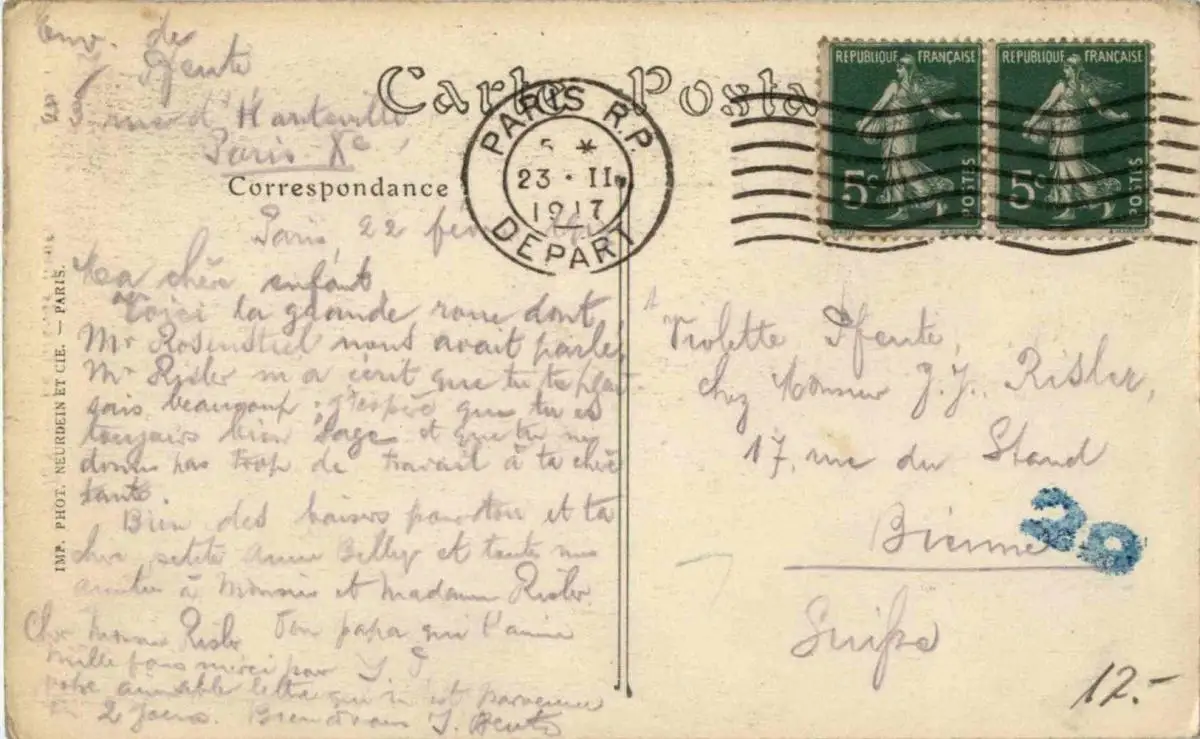 Env. de
Pfente
rue d'Hauteville,
Paris Xe
Carte Posta
Correspondance
PARIS R.P.
5 *
23 - II
1917
DEPART
REPUBLIQUE FRANÇAISE
5c
POSTES
REPUBLIQUE FRANÇAISE
5c
POSTES
Paris, 22 fév
Ma chère enfant
Voici la grande roue dont
Mr Rosenstiel nous avait parlé,
Mr Risler m'a écrit que tu te plai
sais beaucoup; j'espère que tu es
toujours bien sage et que tu ne
donnes pas trop de travail à ta chère
tante.
Bien des baisers pour toi et ta
chère petite amie et toutes mes
amitiés à Monsieur et Madame Risler.
Ton papa qui t'aime
Cher Monsieur Risler
mille fois merci pour
votre aimable lettre qui m'est parvenue
en 2 jours. Bien à vous
IMP. PHOT. NEURDEIN ET CIE. — PARIS.
Violette Pfente,
chez Monsieur J. J. Risler,
17, rue du Stand
Bienne
Suisse
20
12.-